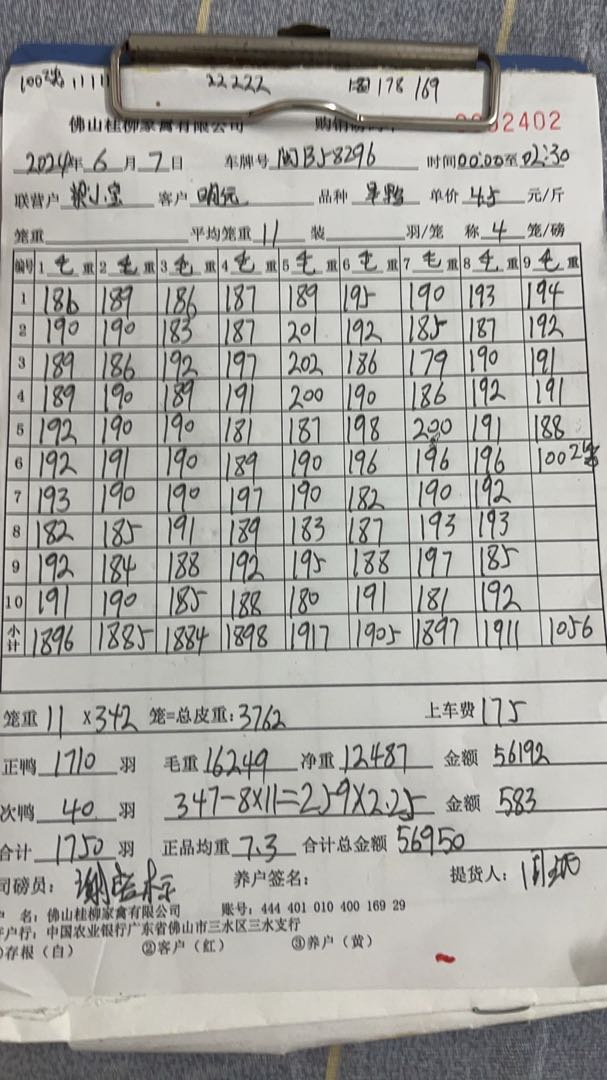 11111 22222 178 169
佛山桂柳家禽有限公司 购销
2402
2024年 6 月 7 日 车牌号 闽B58296 时间 00:00 至 02:30
联营户 客户 明 品种 单价 4.5 元/斤
笼重 平均笼重 11 装 羽/笼 称 4 笼/磅
编号 1 毛 重 2 毛 重 3 毛 重 4 毛 重 5 毛 重 6 毛 重 7 毛 重 8 毛 重 9 毛 重
1 186 189 186 187 189 195 190 193 194
2 190 190 183 187 201 192 185 187 192
3 189 186 192 197 202 186 179 190 191
4 189 190 189 191 200 190 186 192 191
5 192 190 190 181 187 198 200 191 188
6 192 191 190 189 190 196 196 196 100
7 193 190 190 197 190 182 190 192
8 182 185 191 189 183 187 193 193
9 192 184 188 192 195 188 197 185
10 191 190 185 188 180 191 181 192
小计 1896 1885 1884 1898 1917 1905 1897 1911 1056
笼重 11 ×342 笼=总皮重: 3762 上车费 175
正鸭 1710 羽 毛重 16249 净重 12487 金额 56192
次鸭 40 羽 347-8×11=259×2.25 金额 583
合计 1750 羽 正品均重 7.3 合计总金额 56950
司磅员: 养户签名: 提货人:
名: 佛山桂柳家禽有限公司 账号: 444 401 010 400 169 29
户行: 中国农业银行广东省佛山市三水区三水支行
存根(白) ②客户(红) ③养户(黄)